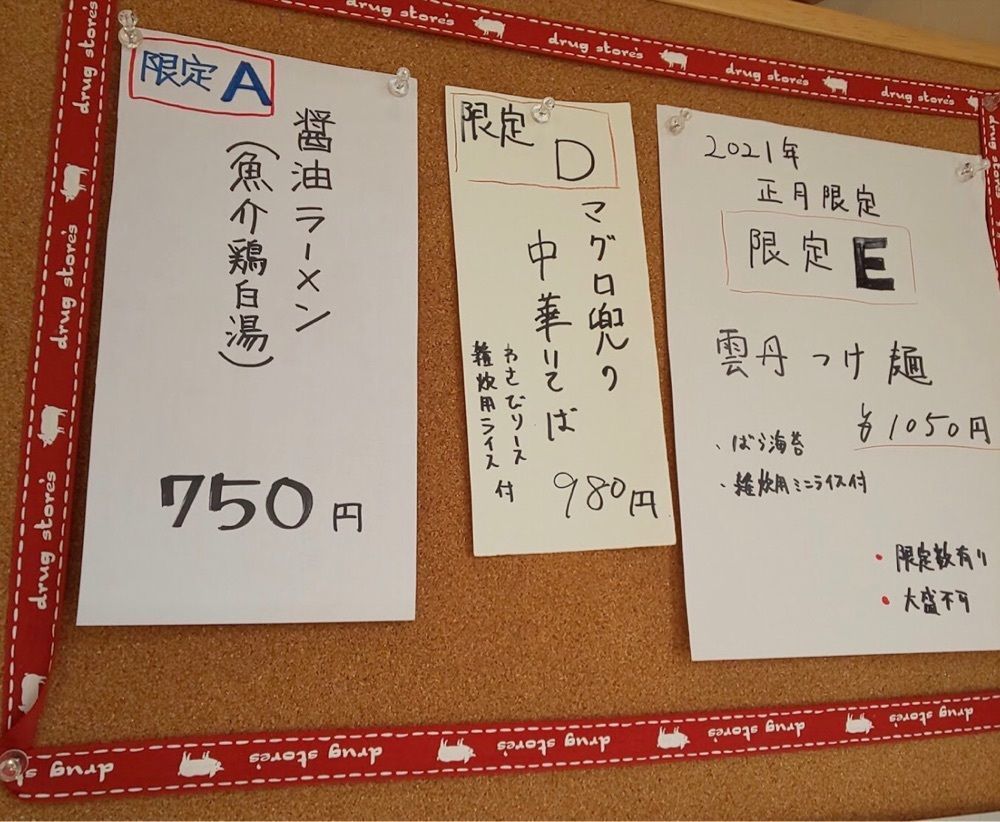 限定 A
醤油ラーメン
(魚介鶏白湯)
750円
限定 D
マグロ兜の
中華そば
わさびソース
雑炊用ライス 付
980円
2021年
正月限定
限定 E
雲丹つけ麺
¥1050円
・ばら海苔
・雑炊用ミニライス付
・限定数有り
・大盛不可
drug store's
drug store's
drug store's
drug store's
drug store's
drug store's
drug store's
drug store's
drug store's
drug store's
drug store's
drug store's
drug store's
drug store's